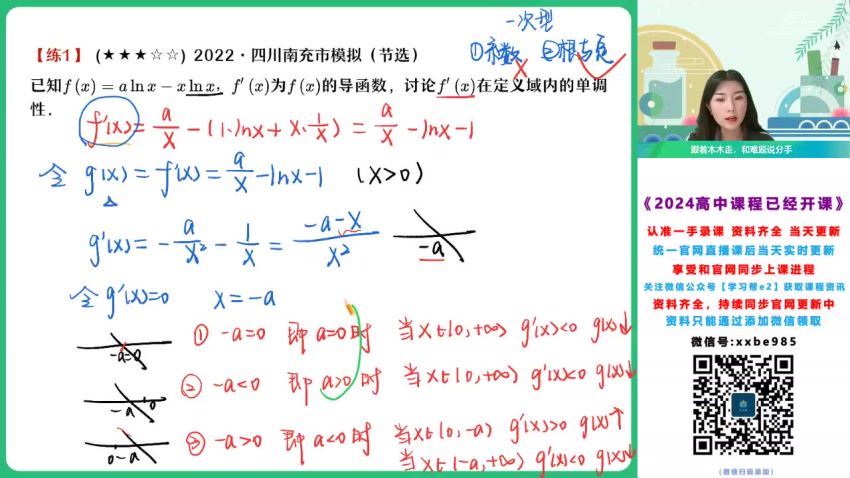 一次型
①系数 ②根与定
【练1】 (★★★☆☆) 2022·四川南充市模拟（节选）
已知f(x)=a ln x−x ln x，f′(x)为f(x)的导函数，讨论f′(x)在定义域内的单调
性．
f'(x)=a/x-(1·lnx+x·1/x)=a/x-lnx-1
令 g(x)=f'(x)=a/x-lnx-1 (x>0)
g'(x)=-a/x²-1/x=-a-x/x²
-a
令g'(x)=0 x=-a
-a=0
① -a=0 即a=0时 当x∈(0,+∞) g'(x)<0 g(x)↓
-a 0
② -a<0 即a>0时 当x∈(0,+∞) g'(x)<0 g(x)↓
0 -a
③ -a>0 即a<0时 当x∈(0,-a) g'(x)>0 g(x)↑
当x∈(-a,+∞) g'(x)<0 g(x)↓
跟着木木走，和难题说分手
《2024高中课程已经开课》
认准一手录课 资料齐全 当天更新
统一官网直播课后当天实时更新
享受和官网同步上课进程
关注微信公众号【学习帮e2】获取课程资讯
资料齐全，持续同步官网更新中
资料只能通过添加微信领取
微信号:xxbe985
(微信扫码添加)